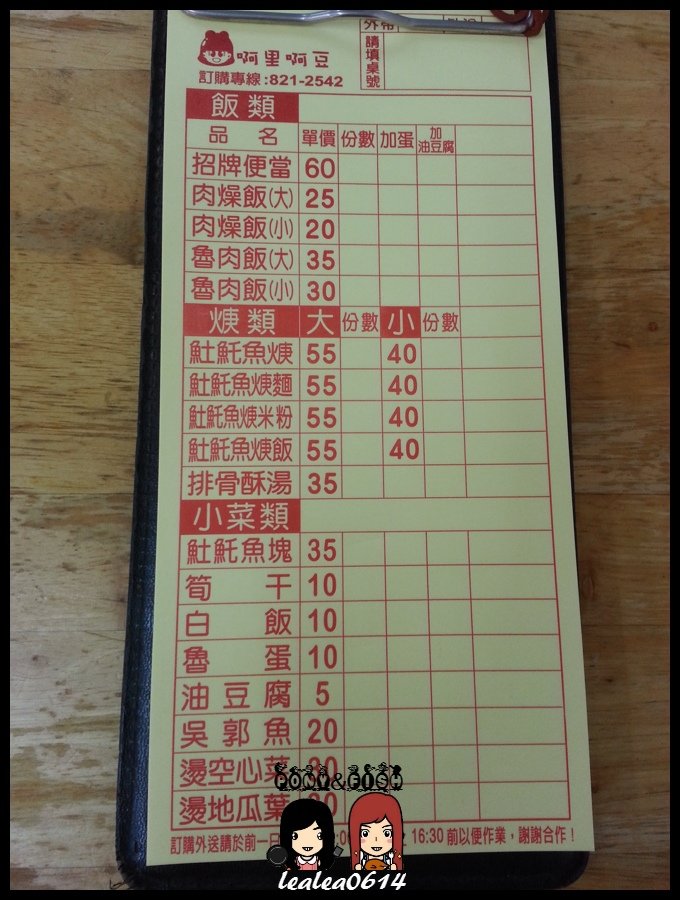 啊里啊豆
訂購專線:821-2542
請填桌號
飯類
品名 單價 份數 加蛋 加油豆腐
招牌便當 60
肉燥飯(大) 25
肉燥飯(小) 20
魯肉飯(大) 35
魯肉飯(小) 30
焿類 大 份數 小 份數
𩵚魠魚焿 55 40
𩵚魠魚焿麵 55 40
𩵚魠魚焿米粉 55 40
𩵚魠魚焿飯 55 40
排骨酥湯 35
小菜類
𩵚魠魚塊 35
筍干 10
白飯 10
魯蛋 10
油豆腐 5
吳郭魚 20
燙空心菜
燙地瓜葉
訂購外送請於前一日 16:30 前以便作業，謝謝合作！
PONY&FISH
lealea0614